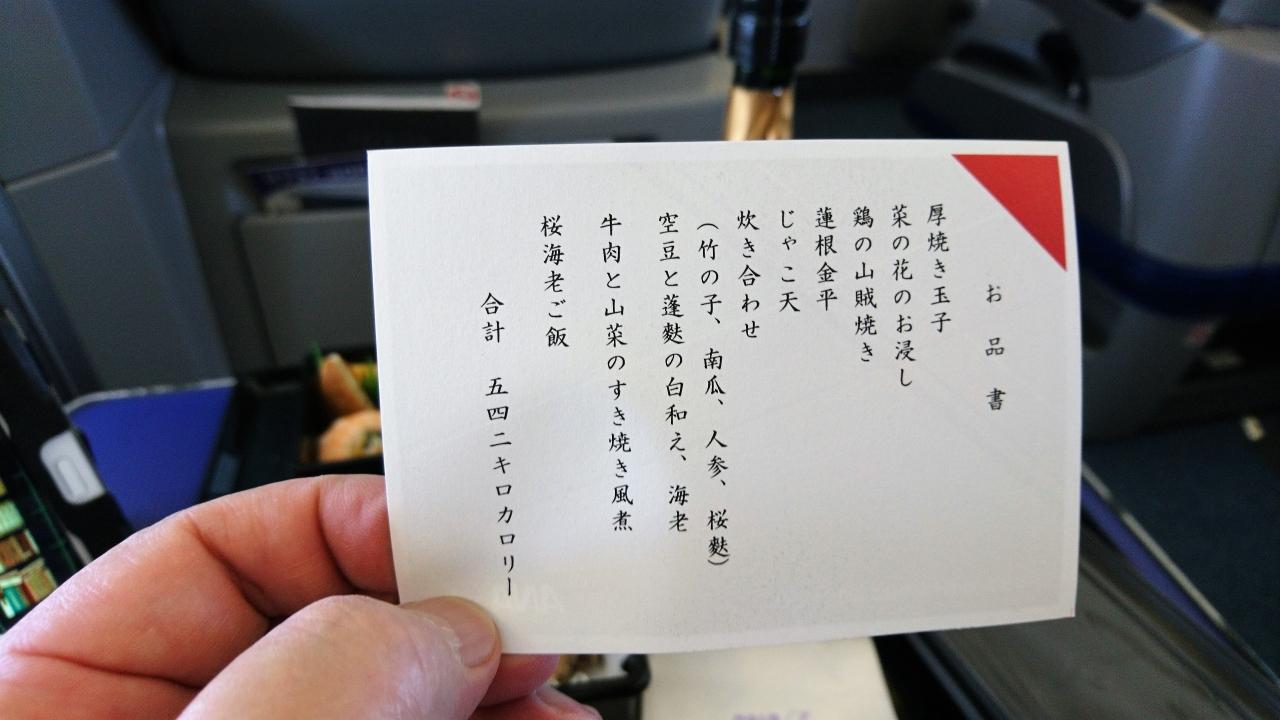 お品書
厚焼き玉子
菜の花のお浸し
鶏の山賊焼き
蓮根金平
じゃこ天
炊き合わせ
（竹の子、南瓜、人参、桜麩）
空豆と蓬麩の白和え、海老
牛肉と山菜のすき焼き風煮
桜海老ご飯
合計　五四二キロカロリー